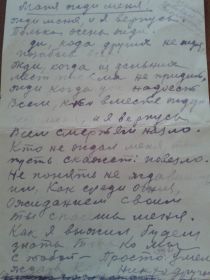 жди меня
Жди меня, и я вернусь
Только очень жди
Жди, когда других не жду
позабыв
Жди, когда из дальних
мест писем не придет
Жди когда уж надоест
Всем, кто вместе ждут
и я вернусь
Всем смертям назло.
Кто не ждал меня
пусть скажет: повезло.
Не понять не ждавшим
им, Как среди огня,
Ожиданием своим
Ты спасла меня.
Как я выжил, будем
знать мы
с тобой — Просто
ждать